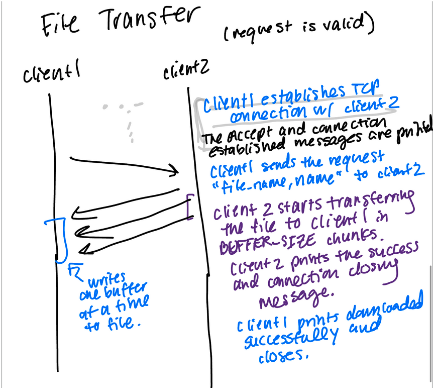 File Transfer
(request is valid)
client1
client2
client1 establishes TCP
connection w/ client2
The Accept and connection
established messages are printed
client1 sends the request
"file_name, name" to client2
client 2 starts transferring
the file to client1 in
BUFFER_SIZE chunks.
client2 prints the success
and connection closing
message.
client1 prints downloaded
successfully and
closes.
writes
one buffer
at a time
to file.